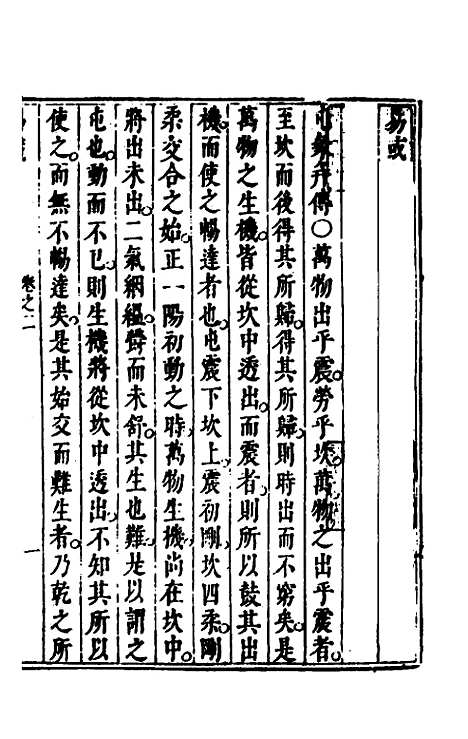 易或
屯彖傳〇萬物出乎震。勞乎坎。萬物之出乎震者。
至坎而後得其所歸。得其所歸則時出而不窮矣。是
萬物之生機皆從坎中透出。而震者則所以鼓其出
機。而使之暢達者也。屯震下坎上。震初剛。坎四柔。剛
柔交合之始。正一陽初動之時。萬物生機尚在坎中。
將出未出。二氣絪縕。鬱而未舒。其生也難。是以謂之
屯也。動而不已。則生機將從坎中透出。不知其所以
使之。而無不暢達矣。是其始交而難生者。乃乾之所
卷之二
一